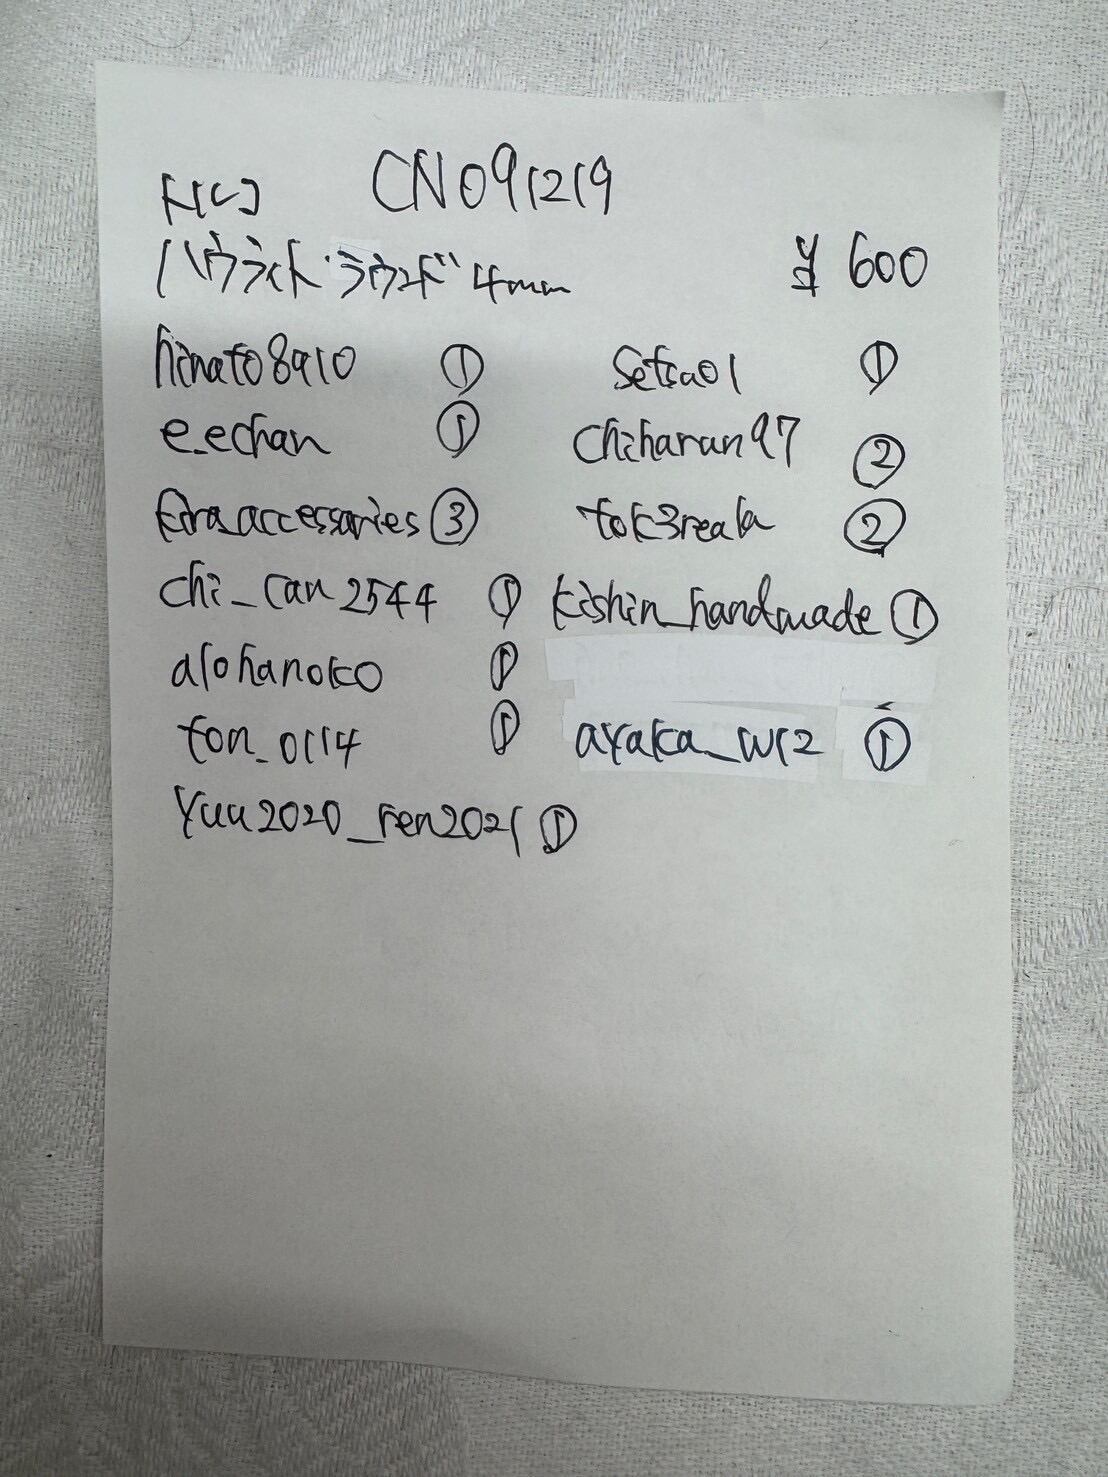 トルコ CN091219
ハウライト・ラウンド 4mm ¥600
hinato8910 ① setsa01 ①
e.echan ① chiharun97 ②
kira_accessaries ③ tok3reala ②
chi_can2544 ① kishin_handmade ①
alohanoko ①
ton_0114 ① ayaka_wr2 ①
yuu2020_ren2021 ①